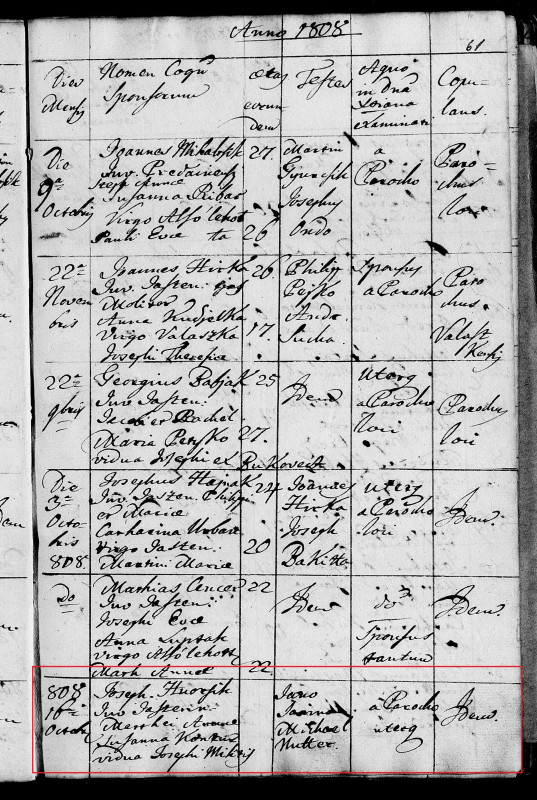 Anno 1808
61
Dies Mensis
Nomen Cogn
Sponsorum
aetas
eorun
dem
Testes
Aquo
in Dna
examinati
Copu-
lans.
Die
9na
Octobris
Joannes
Juv.
Susanna Ribar
Virgo Alsólehot
Pauli Evae ta
27.
26
Martin
Josephus
Ondo
a
Parocho
Paro-
chus
loci
22a
Novem
bris
Joannes Hirka
Juv. Jasten:
Molitor
Anna Kudjelka
Virgo Valaszka
Josephi Theresia
26.
17.
Philip
Pejko
Andr.
Sucha
Sponsus
a Parocho
Paro
chus
Valasz
22a
9bris
Georgius Babjak
Juv Jasten:
Jacobi et Rachel
Maria Petyko
vidua Josephi ex Bukovecz
25
27.
Idem
uterq
a Parocho
loci
Parochus
loci
Die
3a
Octo-
bris
808.
Josephus Hajnak
Juv. Jaszen. Philippi
et Maria
Catharina Urban
Virgo Jasten:
Martini Maria
24
20
Joannes
Hirka
Joseph
Bakitta
uterq
a Parocho
loci
Idem.
do
Mathias Cencer
Juv Jasten:
Josephi Evae
Anna Luptak
Virgo Alsólehott
Mark Annae
22
22.
Idem
do
Sponsus
tantum
Idem.
808
16
Octobr
Joseph.
Juv Jastenin
Susanna
vidua Josephi
Michael
Hutter.
a Parocho
uterq
Idem.